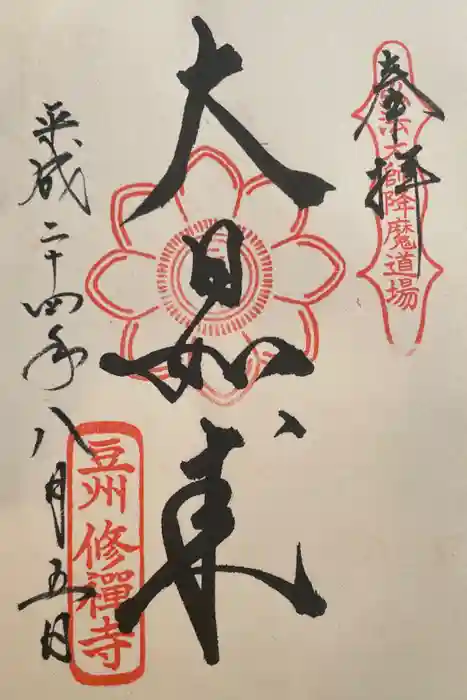 奉拝
弘法大師降魔道場
大日如来
平成二十四年八月五日
豆州修禪寺